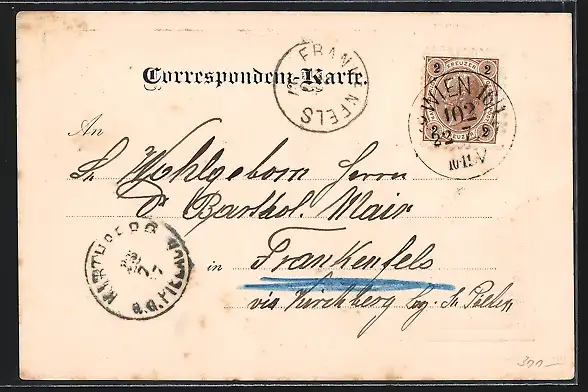 Correspondenz-Karte.
FRANKENFELS
2 KREUZER 2
WIEN
102
2 2
10-11 V
An
Sr. Wohlgeborn Herrn
Barthol. Mair
in Frankenfels
via Kirchberg
KIRCHBERG
a. d. PIELACH
300-